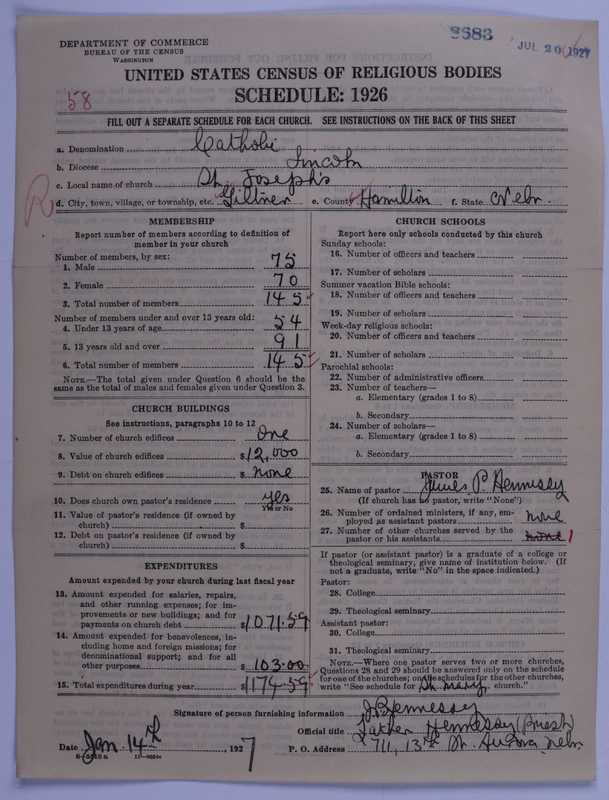 DEPARTMENT OF COMMERCE
BUREAU OF THE CENSUS
WASHINGTON
JUL 20 1927
UNITED STATES CENSUS OF RELIGIOUS BODIES
SCHEDULE: 1926
58
FILL OUT A SEPARATE SCHEDULE FOR EACH CHURCH. SEE INSTRUCTIONS ON THE BACK OF THIS SHEET
a. Denomination Catholic
b. Diocese Lincoln
c. Local name of church St. Joseph's
R
d. City, town, village, or township, etc. Giltner e. County Hamilton f. State Nebr.
MEMBERSHIP
Report number of members according to definition of
member in your church
Number of members, by sex:
1. Male 75
2. Female 70
3. Total number of members 145
Number of members under and over 13 years old:
4. Under 13 years of age 54
5. 13 years old and over 91
6. Total number of members 145
NOTE.—The total given under Question 6 should be the
same as the total of males and females given under Question 3.
CHURCH BUILDINGS
See instructions, paragraphs 10 to 12
7. Number of church edifices One
8. Value of church edifices $12,000
9. Debt on church edifices $ None
10. Does church own pastor's residence yes
Yes or No
11. Value of pastor's residence (if owned by
church) $
12. Debt on pastor's residence (if owned by
church) $
EXPENDITURES
Amount expended by your church during last fiscal year
13. Amount expended for salaries, repairs,
and other running expenses; for im-
provements or new buildings; and for
payments on church debt $1071.59
14. Amount expended for benevolences, in-
cluding home and foreign missions; for
denominational support; and for all
other purposes $103.00
15. Total expenditures during year $1174.59
CHURCH SCHOOLS
Report here only schools conducted by this church
Sunday schools:
16. Number of officers and teachers
17. Number of scholars
Summer vacation Bible schools:
18. Number of officers and teachers
19. Number of scholars
Week-day religious schools:
20. Number of officers and teachers
21. Number of scholars
Parochial schools:
22. Number of administrative officers
23. Number of teachers—
a. Elementary (grades 1 to 8)
b. Secondary
24. Number of scholars—
a. Elementary (grades 1 to 8)
b. Secondary
PASTOR
25. Name of pastor James P. Hennessey
(If church has no pastor, write "None")
26. Number of ordained ministers, if any, em-
ployed as assistant pastors none
27. Number of other churches served by the
pastor or his assistants none 1
If pastor (or assistant pastor) is a graduate of a college or
theological seminary, give name of institution below. (If
not a graduate, write "No" in the space indicated.)
Pastor:
28. College
29. Theological seminary
Assistant pastor:
30. College
31. Theological seminary
NOTE.—Where one pastor serves two or more churches,
Questions 28 and 29 should be answered only on the schedule
for one of the churches; on the schedules for the other churches,
write "See schedule for St. Mary church."
Signature of person furnishing information J.P. Hennessey
Official title Father Hennessey (Priest)
Date Jan. 14th, 1927 P. O. Address 711, 13th St. Aurora Nebr